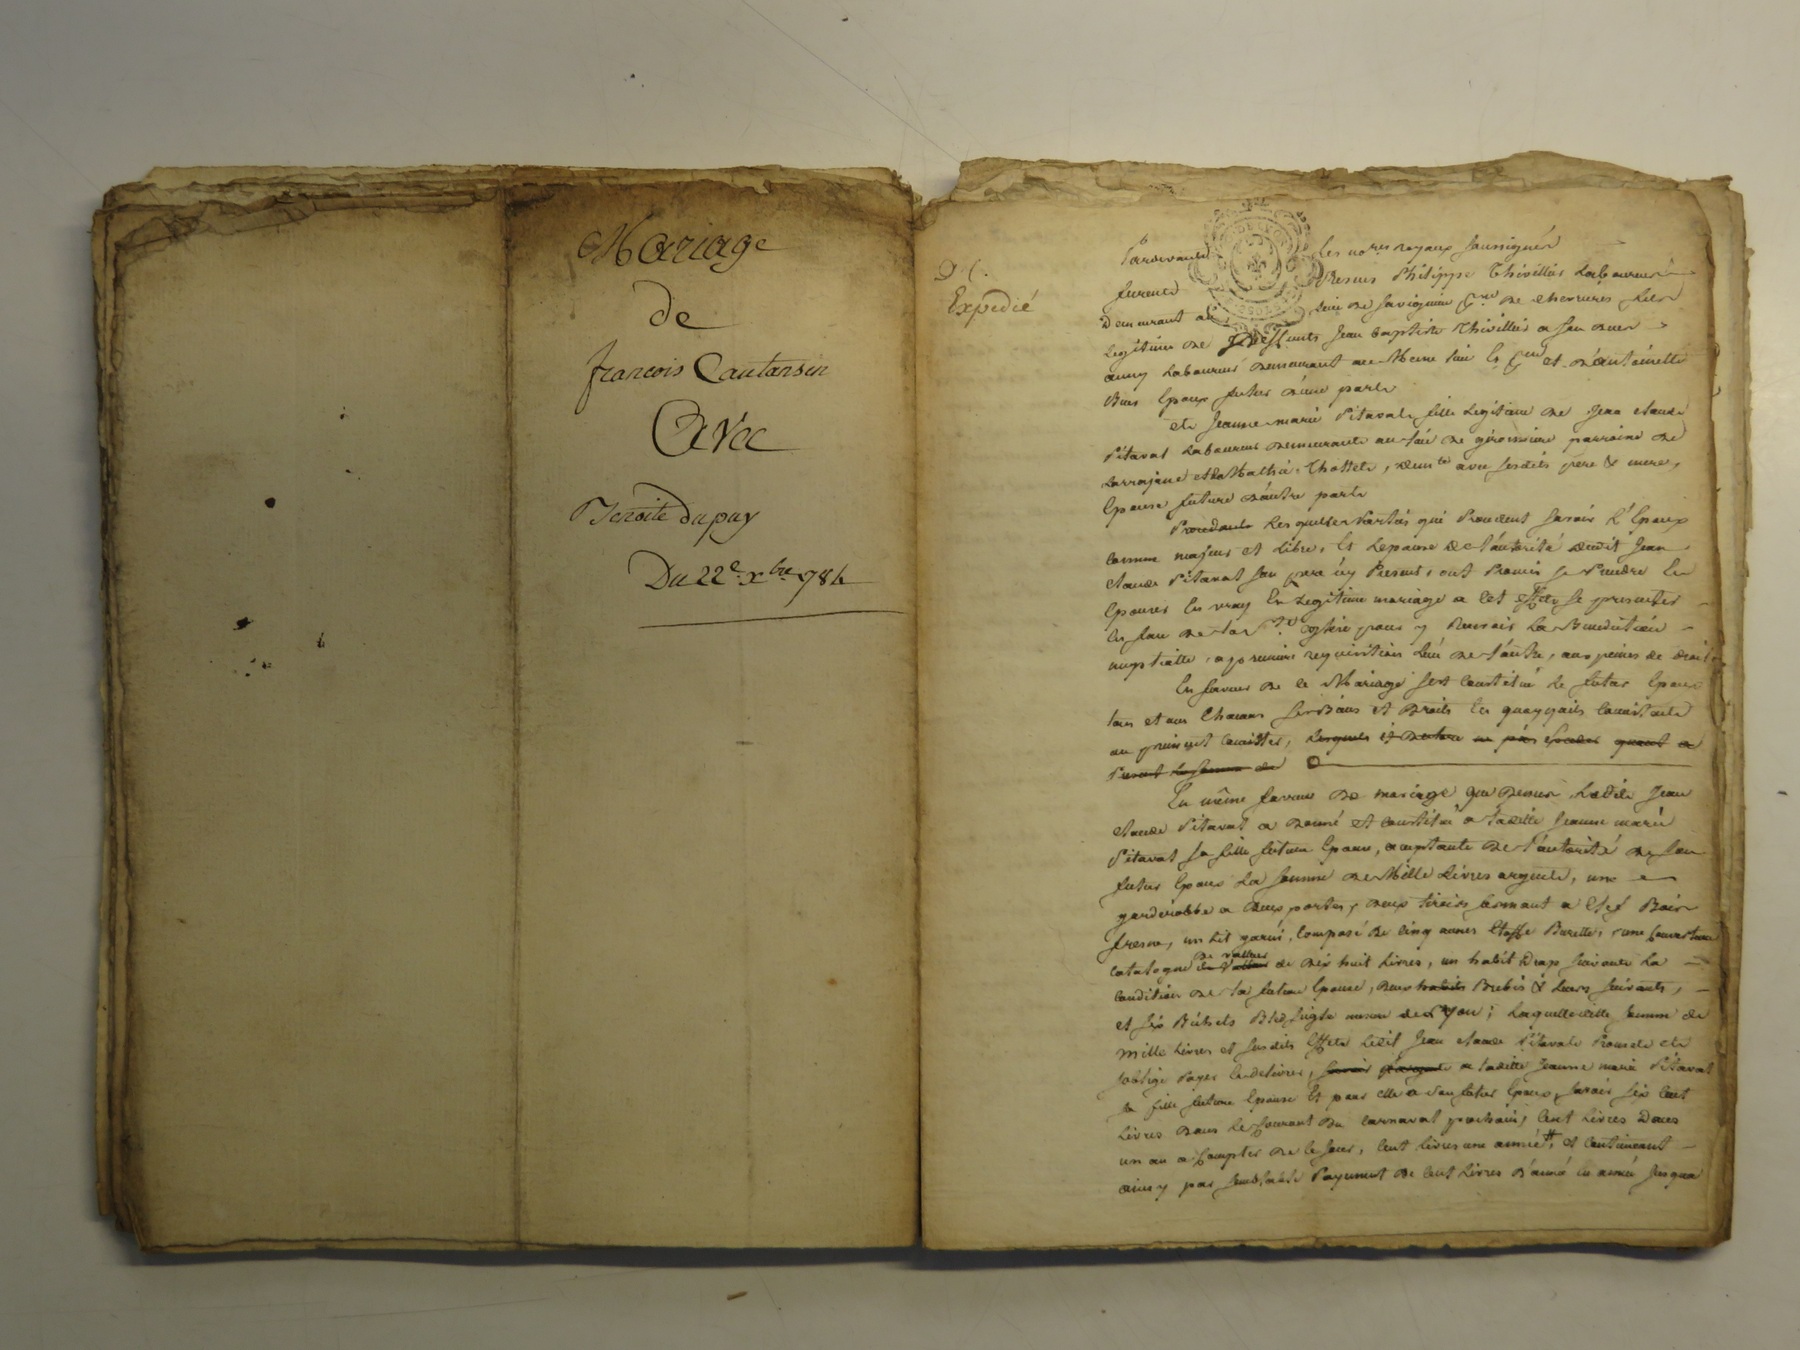 Mariage
de
françois Cautansin
Avec
Benoite dupuy
Du 22e. xbre 1784
Expedié
Pardevant les nores royaux soussignés
furent Presens Philippe Thivillier Laboureur
Demeurant au lieu de savignieu psse de chevrieres fils
Legitime de Jean baptiste Thivillier a son vivant
aussy Laboureur demeurant au Meme lieu et d'antoinette
Epoux futur d'une part
et Jeanne-marie Pitaval fille Legitime de Jean claude
Pitaval Laboureur demeurante au lieu de parroisse de
Larrajasse et de Mathie Thollet, avec sesdits pere & mere,
Epouse future d'autre part
Procedant Lesquelles Parties qui Procedent savoir L'Epoux
comme majeur et Libre, et Lepouse de L'autorité dudit Jean
claude Pitaval son pere icy Present, ont Promis se Prendre En
Epoures En vray En Legitime mariage a cet effet se presenter
En face de la Ste eglise pour y Recevoir La Benediction
nuptialle, a premiere requisition L'un de L'autre, aux peines de droit
En faveur de ce Mariage sest constitué le futur Epoux
tous et uns Chacuns ses Biens et Droits En quoy qu'ils Consistent
ou puissent consister,
En même faveur de mariage que dessus Ledit Jean
claude Pitaval a donné et constitué a Ladite Jeanne marie
Pitaval sa fille future Epouse, acceptante de L'autorité de son
futur Epoux La somme de Mille Livres argent, une
garderobbe a deux portes, deux tiroirs fermant a Clef Bois
fresne, un Lit garni, Composé de cinq aunes Etoffe Burette, une couverture
catalogne de valleur de dix huit Livres, un habit Drap suivant La
condition de la future Epouse, deux habits Brebis & Leurs suivants,
et six Bichets Bled seigle mesure de ; Laquelle ditte somme de
Mille Livres et susdits Effets Ledit Jean claude Pitaval Promet et
soblige Payer Et delivrer, a Ladite Jeanne marie Pitaval
sa fille future Epouse Et pour elle a son futur Epoux, savoir six Cent
Livres dans Le Courant du carnaval prochain, Cent Livres Dans
un an a Compter de ce Jour, Cent Livres une année, et continuant
ainsy par semblable Payement de Cent Livres d'année en année Jusqua